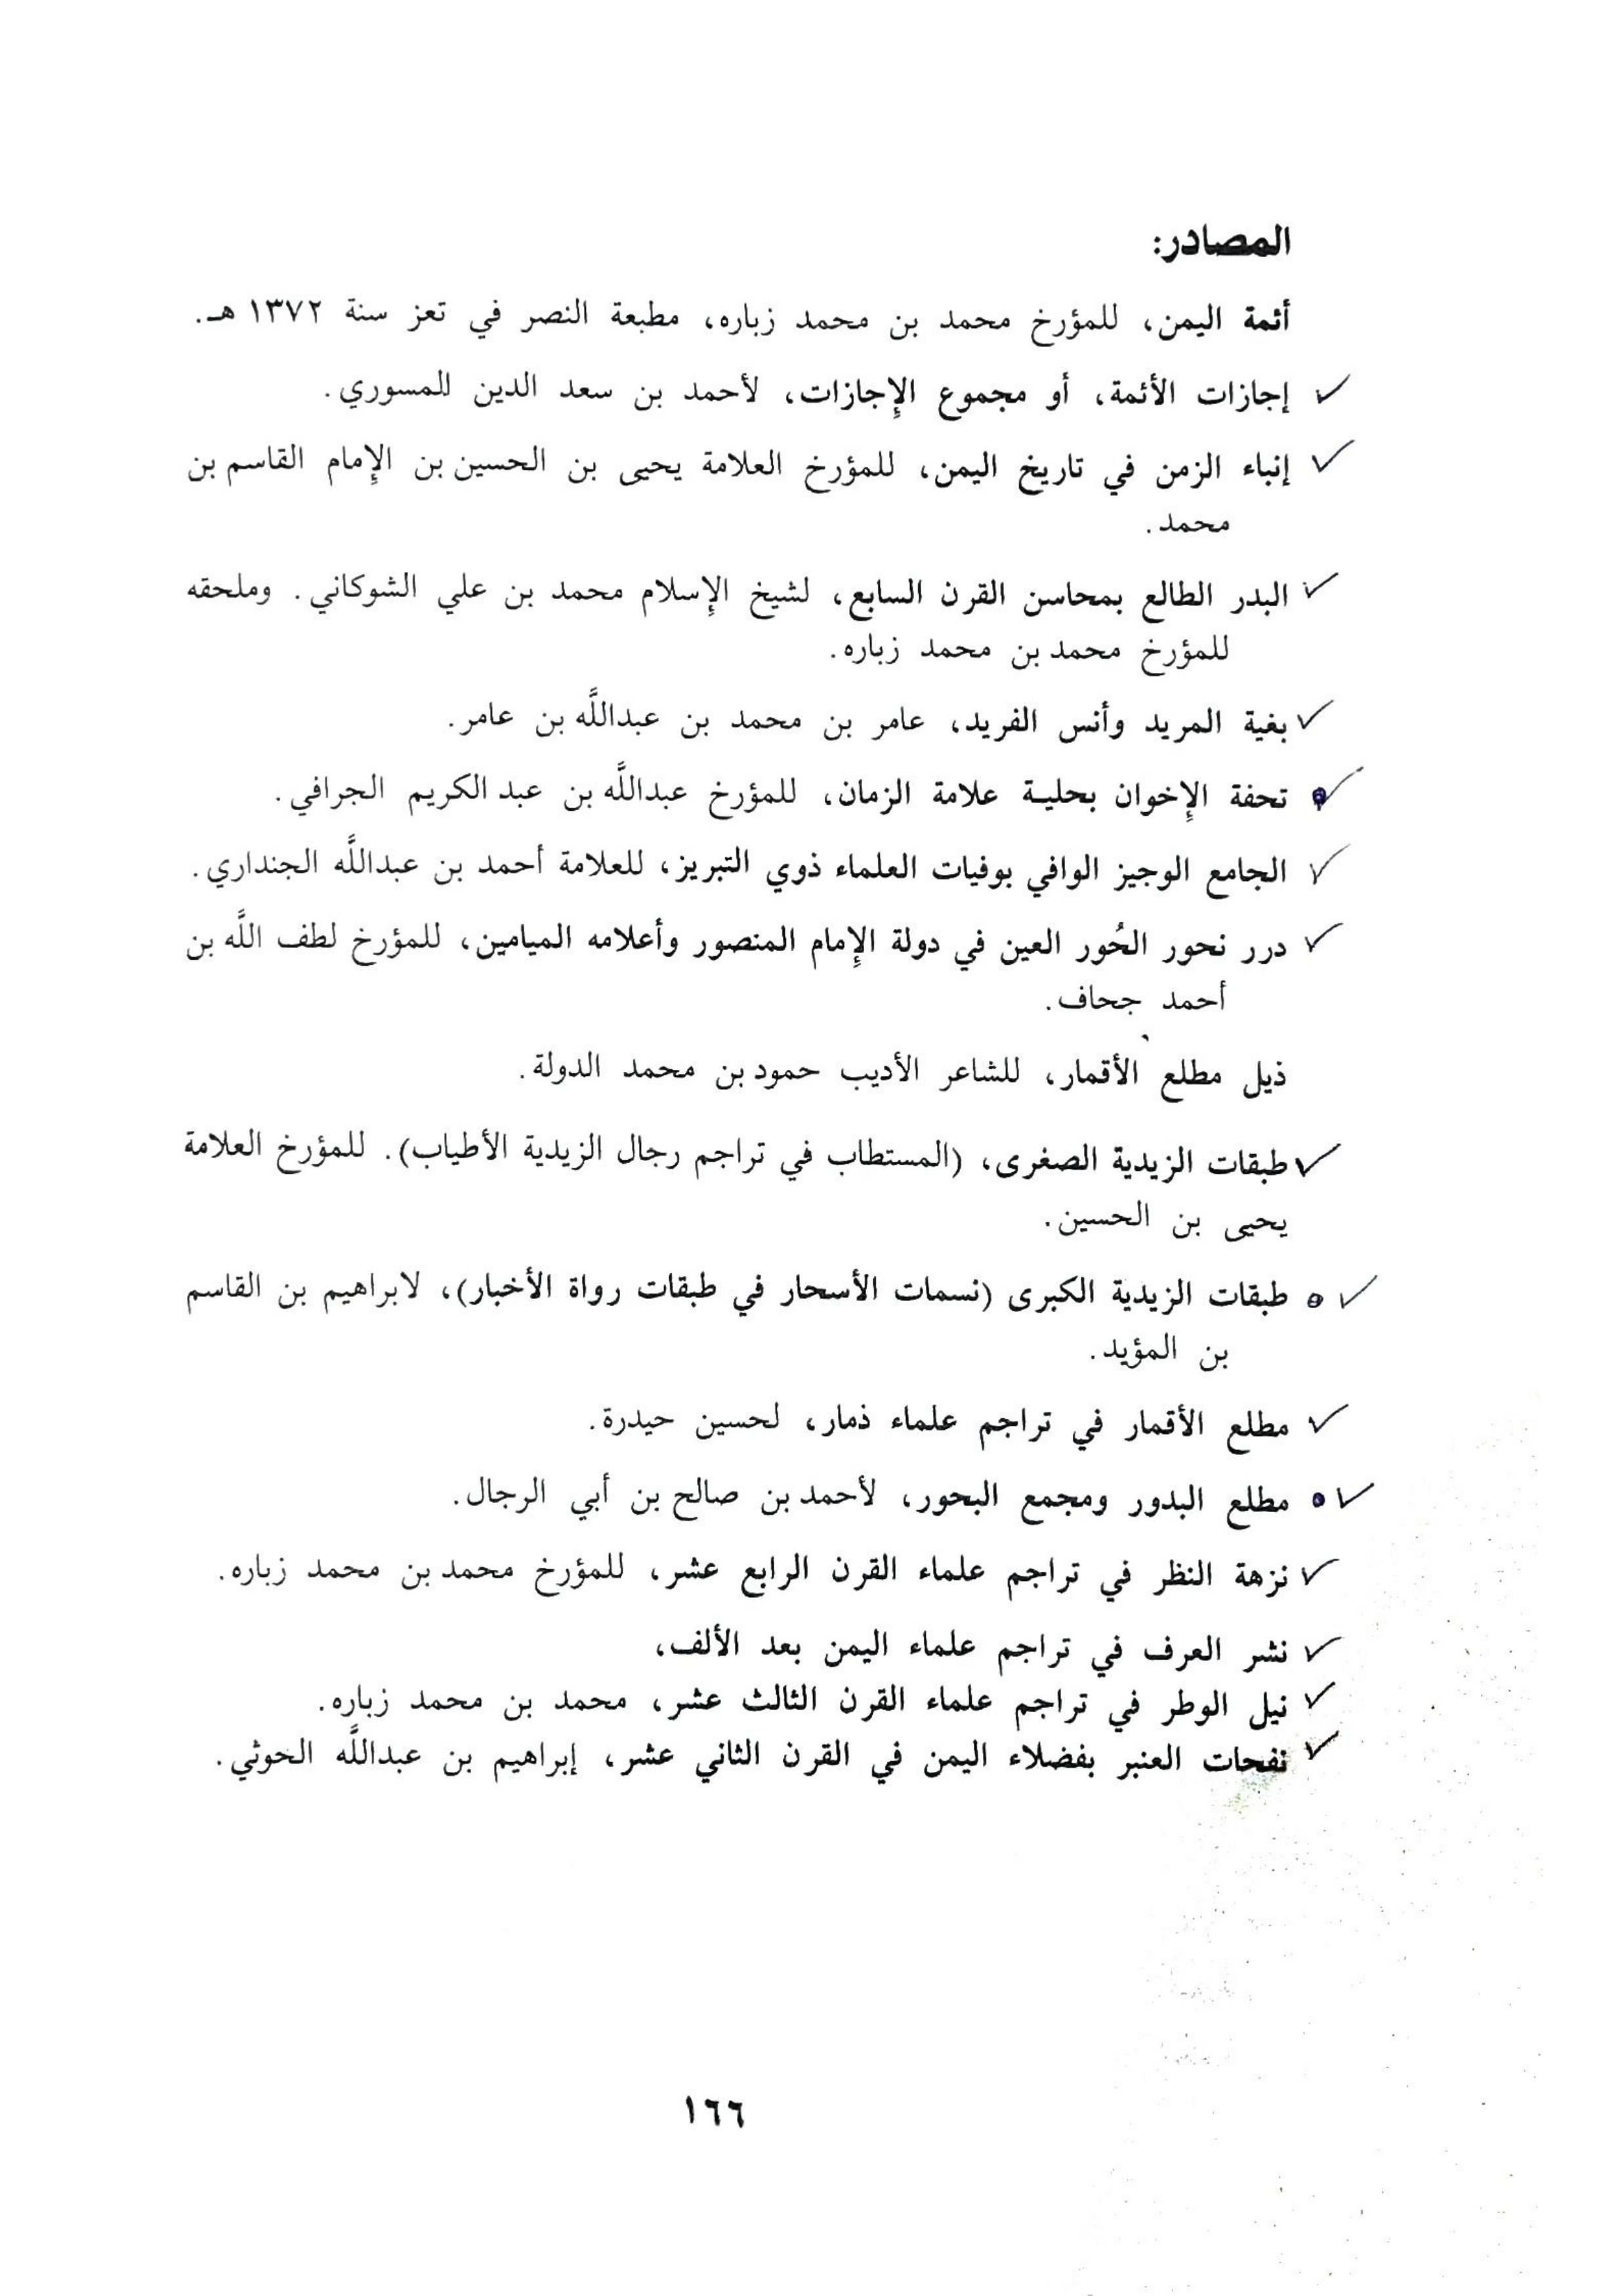 المصادر:
أئمة اليمن، للمؤرخ محمد بن محمد زباره، مطبعة النصر في تعز سنة ١٣٧٢ هـ.
✓ إجازات الأئمة، أو مجموع الإجازات، لأحمد بن سعد الدين للمسوري.
✓ إنباء الزمن في تاريخ اليمن، للمؤرخ العلامة يحيى بن الحسين بن الإمام القاسم بن
محمد.
✓ البدر الطالع بمحاسن القرن السابع، لشيخ الإسلام محمد بن علي الشوكاني. وملحقه
للمؤرخ محمد بن محمد زباره.
✓ بغية المريد وأنس الفريد، عامر بن محمد بن عبداللَّه بن عامر.
✓ تحفة الإخوان بحلية علامة الزمان، للمؤرخ عبداللَّه بن عبد الكريم الجرافي.
✓ الجامع الوجيز الوافي بوفيات العلماء ذوي التبريز، للعلامة أحمد بن عبداللَّه الجنداري.
✓ درر نحور الحُور العين في دولة الإمام المنصور وأعلامه الميامين، للمؤرخ لطف اللَّه بن
أحمد جحاف.
ذيل مطلع الأقمار، للشاعر الأديب حمود بن محمد الدولة.
✓ طبقات الزيدية الصغرى، (المستطاب في تراجم رجال الزيدية الأطياب). للمؤرخ العلامة
يحيى بن الحسين.
✓ طبقات الزيدية الكبرى (نسمات الأسحار في طبقات رواة الأخبار)، لابراهيم بن القاسم
بن المؤيد.
✓ مطلع الأقمار في تراجم علماء ذمار، لحسين حيدرة.
✓ مطلع البدور ومجمع البحور، لأحمد بن صالح بن أبي الرجال.
✓ نزهة النظر في تراجم علماء القرن الرابع عشر، للمؤرخ محمد بن محمد زباره.
✓ نشر العرف في تراجم علماء اليمن بعد الألف،
✓ نيل الوطر في تراجم علماء القرن الثالث عشر، محمد بن محمد زباره.
✓ نفحات العنبر بفضلاء اليمن في القرن الثاني عشر، إبراهيم بن عبداللَّه الحوثي.
١٦٦